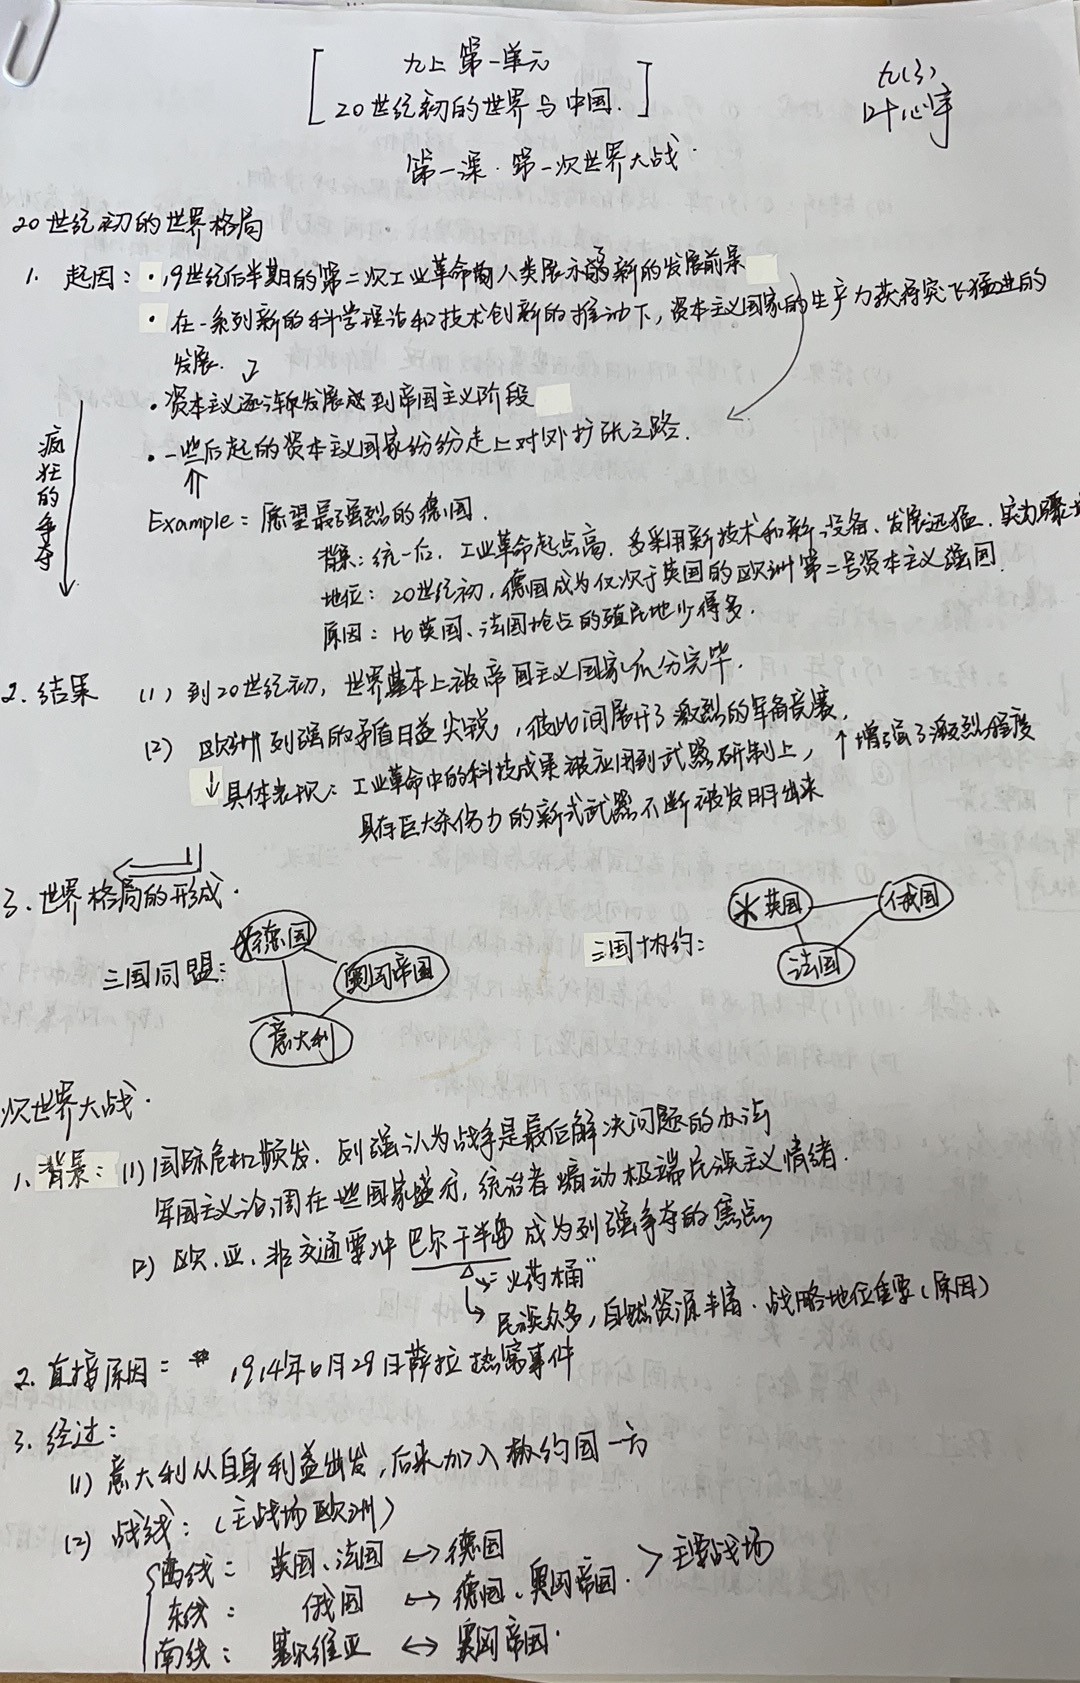 九上 第一单元
20世纪初的世界与中国.
九(3)
叶心宇
第一课·第一次世界大战·
20世纪初的世界格局
1. 起因：·19世纪后半期的第二次工业革命向人类展示崭新的发展前景
·在一系列新的科学理论和技术创新的推动下，资本主义国家的生产力获得突飞猛进的
发展.
·资本主义逐渐发展到帝国主义阶段
·一些后起的资本主义国家纷纷走上对外扩张之路.
疯狂的争夺
Example：愿望最强烈的德国.
背景：统一后，工业革命起点高，多采用新技术和新设备、发展迅猛，实力骤增
地位：20世纪初，德国成为仅次于英国的欧洲第二号资本主义强国.
原因：比英国、法国抢占的殖民地少得多.
2. 结果 (1) 到20世纪初，世界基本上被帝国主义国家瓜分完毕.
(2) 欧洲列强的矛盾日益尖锐，彼此间展开了激烈的军备竞赛.
↓具体表现：工业革命中的科技成果被应用到武器研制上，↑增强了激烈程度
具有巨大杀伤力的新式武器不断被发明出来
3. 世界格局的形成.
三国同盟： 德国
奥匈帝国
意大利
三国协约： 英国 俄国
法国
次世界大战.
1. 背景：(1) 国际危机频发. 列强认为战争是最后解决问题的办法
军国主义论调在一些国家盛行，统治者煽动极端民族主义情绪.
(2) 欧、亚、非交通要冲 巴尔干半岛 成为列强争夺的焦点
“火药桶”
↳ 民族众多，自然资源丰富、战略地位重要（原因）
2. 直接原因： 1914年6月28日萨拉热窝事件
3. 经过：
(1) 意大利从自身利益出发，后来加入协约国一方
(2) 战线：（主战场欧洲）
西线： 英国、法国 ↔ 德国
东线： 俄国 ↔ 德国、奥匈帝国. > 主要战场
南线： 塞尔维亚 ↔ 奥匈帝国.